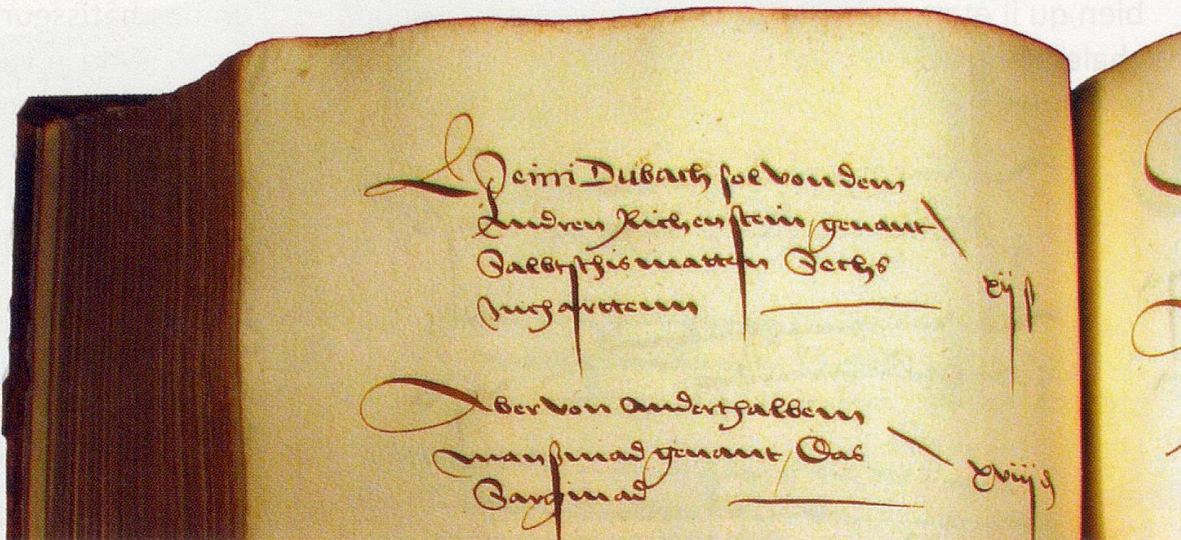 bien qu'il
Heini Dubach sol von dem
Andren Richenstein genant
Salbtschis matten Sechs
Jucharttenn xij ß
Aber von anderthalbem
mansmad genant Das
Sagmad xviij d